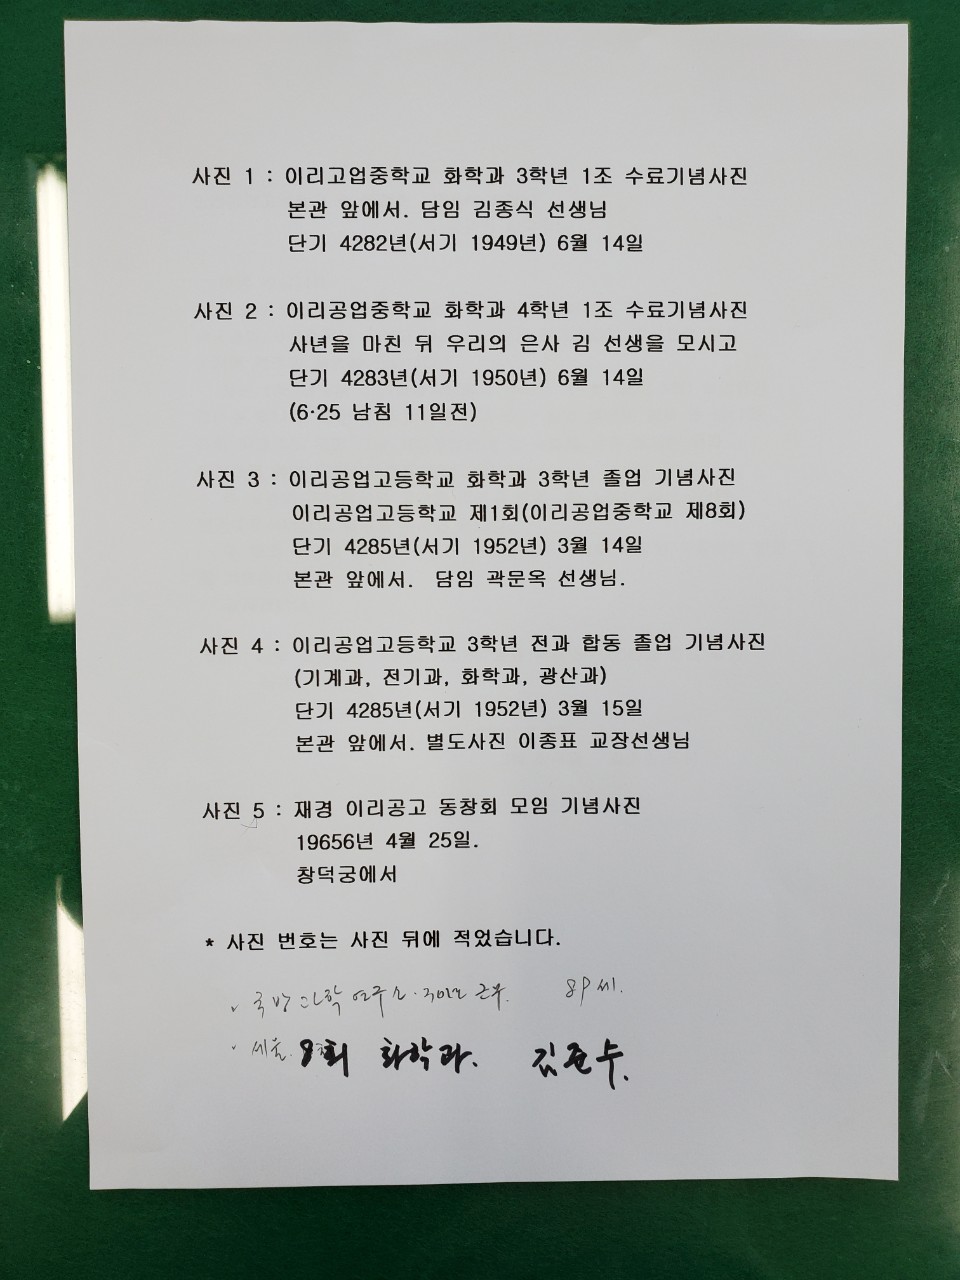 사진 1 : 이리고업중학교 화학과 3학년 1조 수료기념사진
본관 앞에서. 담임 김종식 선생님
단기 4282년(서기 1949년) 6월 14일
사진 2 : 이리공업중학교 화학과 4학년 1조 수료기념사진
사년을 마친 뒤 우리의 은사 김 선생을 모시고
단기 4283년(서기 1950년) 6월 14일
(6·25 남침 11일전)
사진 3 : 이리공업고등학교 화학과 3학년 졸업 기념사진
이리공업고등학교 제1회(이리공업중학교 제8회)
단기 4285년(서기 1952년) 3월 14일
본관 앞에서. 담임 곽문옥 선생님.
사진 4 : 이리공업고등학교 3학년 전과 합동 졸업 기념사진
(기계과, 전기과, 화학과, 광산과)
단기 4285년(서기 1952년) 3월 15일
본관 앞에서. 별도사진 이종표 교장선생님
사진 5 : 재경 이리공고 동창회 모임 기념사진
19656년 4월 25일.
창덕궁에서
* 사진 번호는 사진 뒤에 적었습니다.
국방과학연구소 근무. 89세.
회 화학과. 김